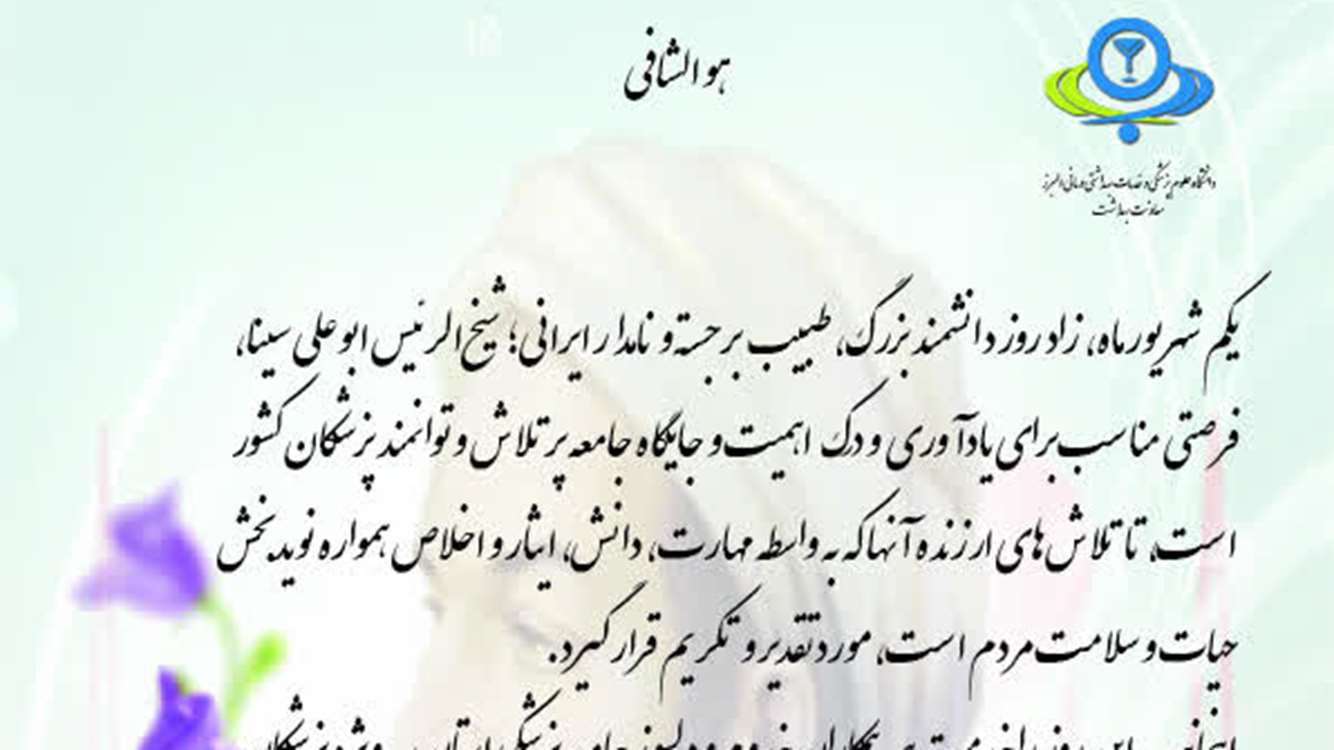 هوالشافی
دانشگاه علوم پزشکی و خدمات بهداشتی درمانی البرز
معاونت بهداشت
یکم شهریورماه، زادروز دانشمند بزرگ، طبیب برجسته و نامدار ایرانی؛ شیخ الرئیس ابوعلی سینا،
فرصتی مناسب برای یادآوری و درک اهمیت و جایگاه جامعه پر تلاش و توانمند پزشکان کشور
است، تا تلاش های ارزنده آنها که به واسطه مهارت، دانش، ایثار و اخلاص همواره نوید بخش
حیات و سلامت مردم است، مورد تقدیر و تکریم قرار گیرد.
اینجانب این روز را خدمت